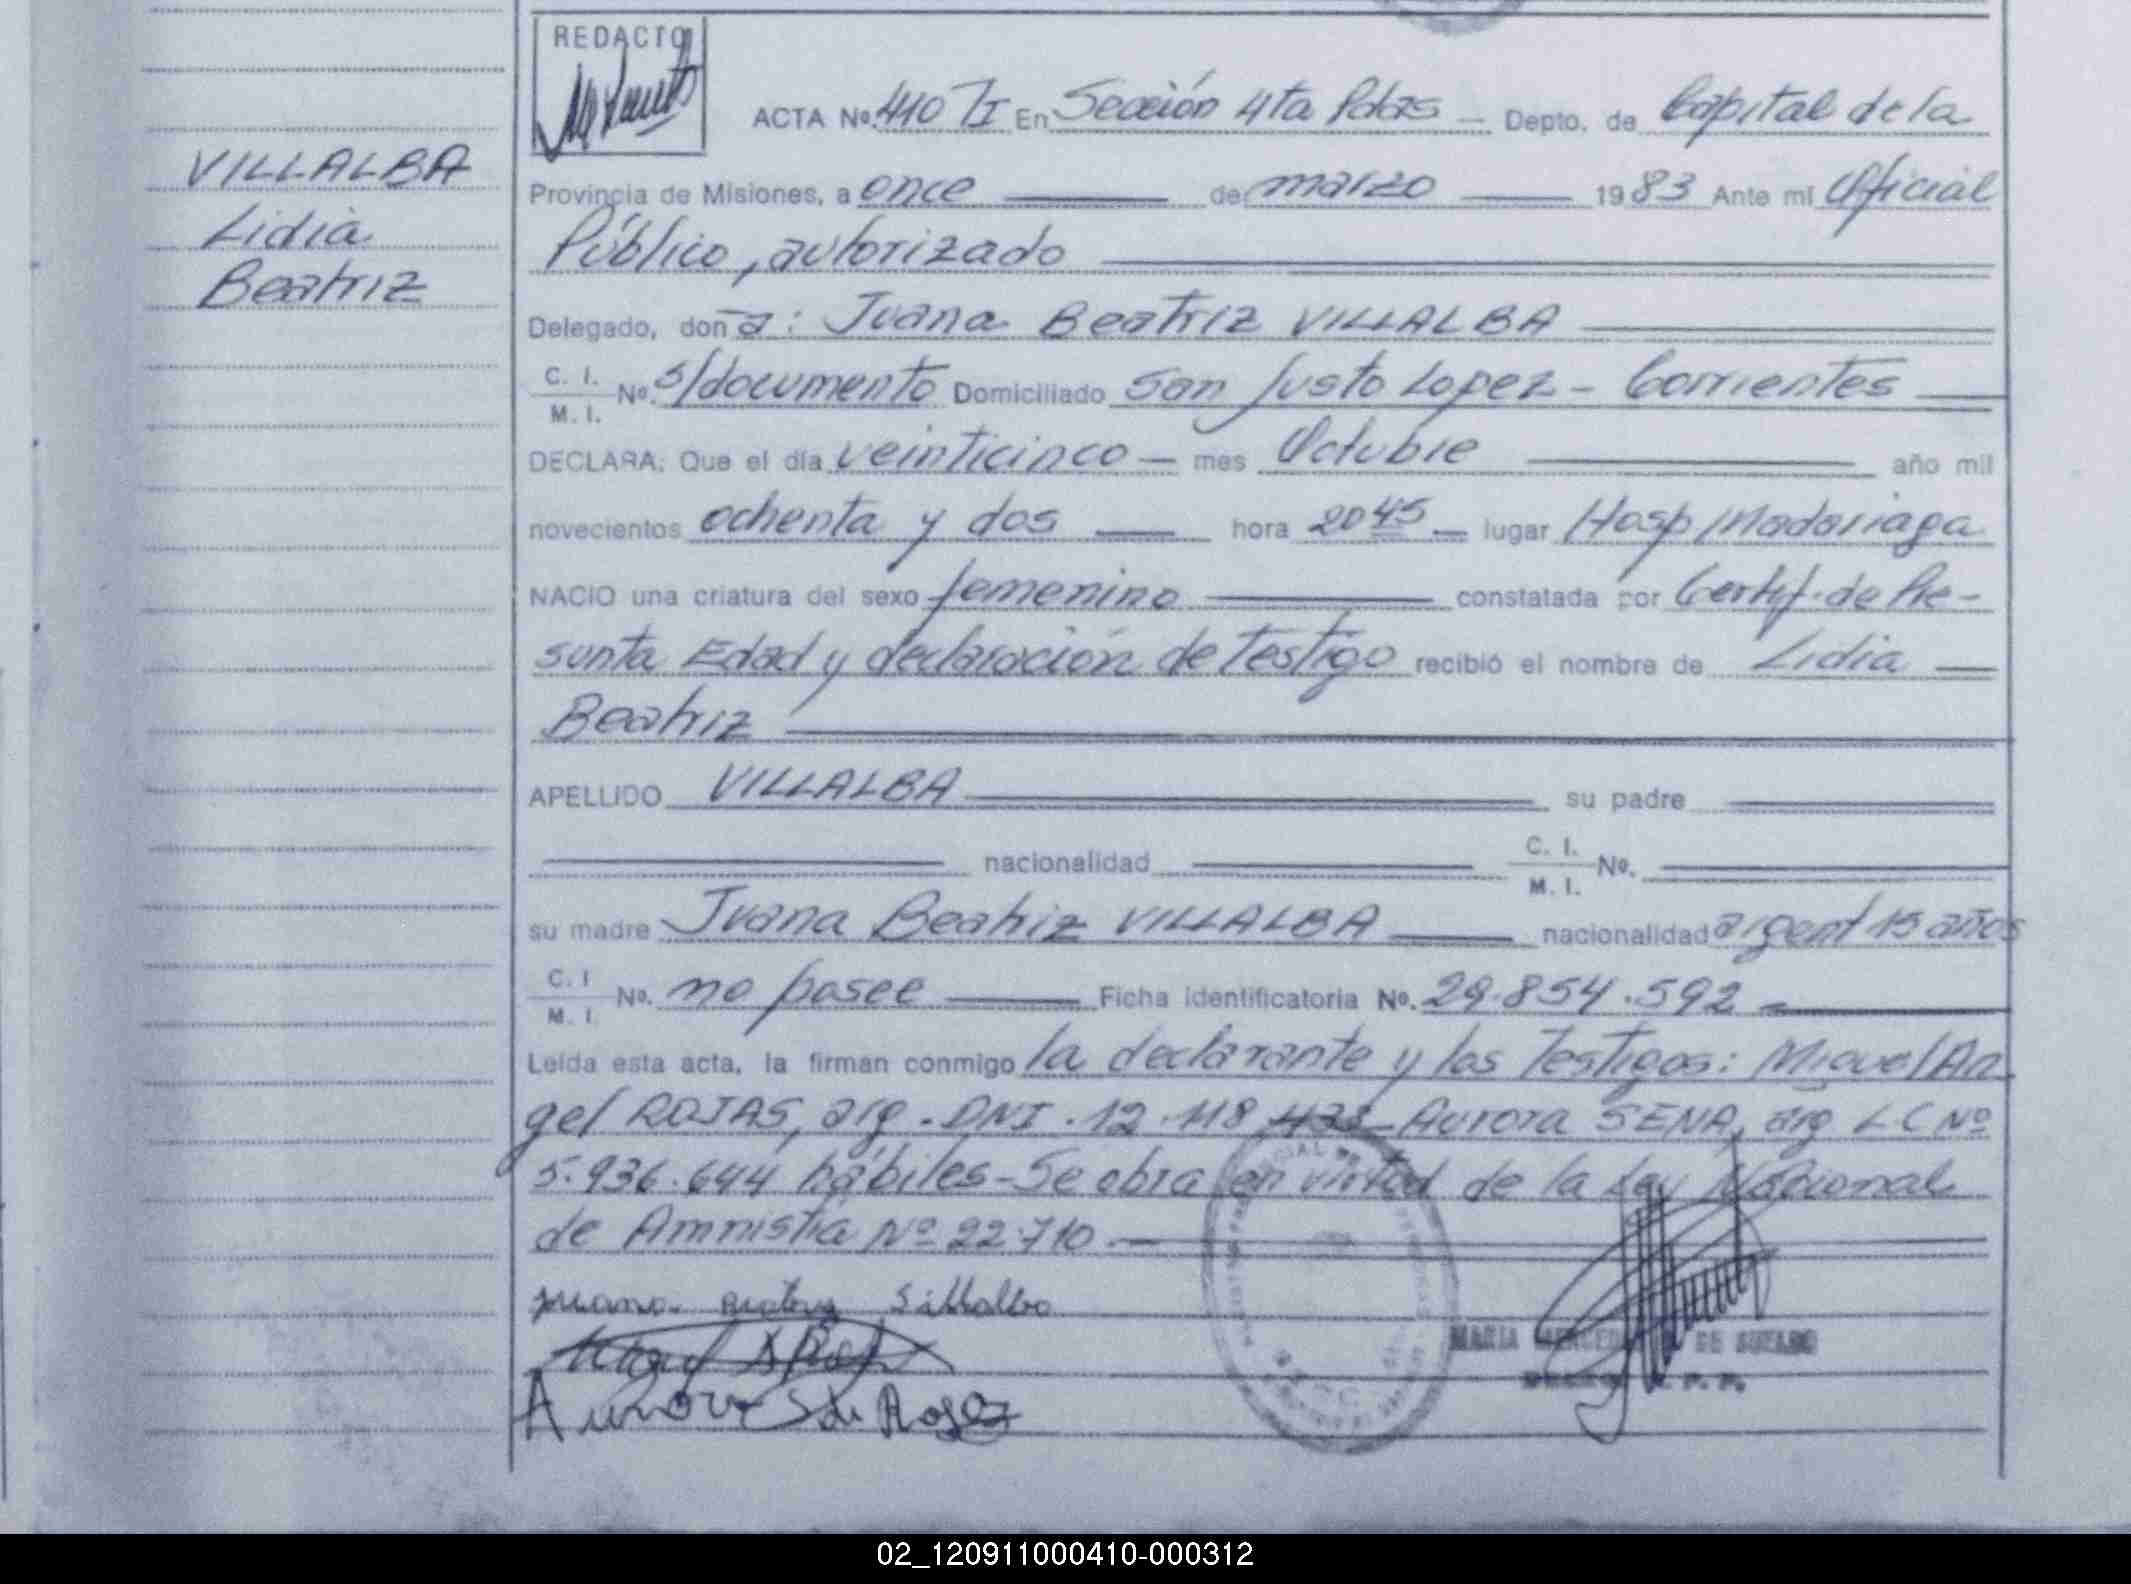 REDACTO
ACTA No. 410 TI En Sección 4ta Pdas — Depto. de Capital de la
VILLALBA
Provincia de Misiones, a once de marzo 1983 Ante mi Oficial
Lidia
Público, autorizado
Beatriz
Delegado, don a: Juana Beatriz VILLALBA
C. I.
M. I. No. s/documento Domiciliado San Justo Lopez - Corrientes
DECLARA: Que el día veinticinco — mes Octubre año mil
novecientos ochenta y dos hora 20 45 — lugar Hosp Madariaga
NACIO una criatura del sexo femenino constatada por Certif. de Pre-
sunta Edad y declaración de testigo recibió el nombre de Lidia
Beatriz
APELLIDO VILLALBA su padre
nacionalidad C. I.
M. I. No.
su madre Juana Beatriz VILLALBA nacionalidad argent 15 años
C. I
M. I No. no posee Ficha identificatoria No. 29.854.592
Leída esta acta, la firman conmigo la declarante y los Testigos: Miguel An
gel ROJAS, arg. DNI. 12.118.438 Aurora SENA, arg LC Nº
5.936.644 hábiles - Se obra en virtud de la Ley Nacional
de Amnistía Nº 22.710
Aurora S de Rojas
MARIA MERCED DE
02_120911000410-000312